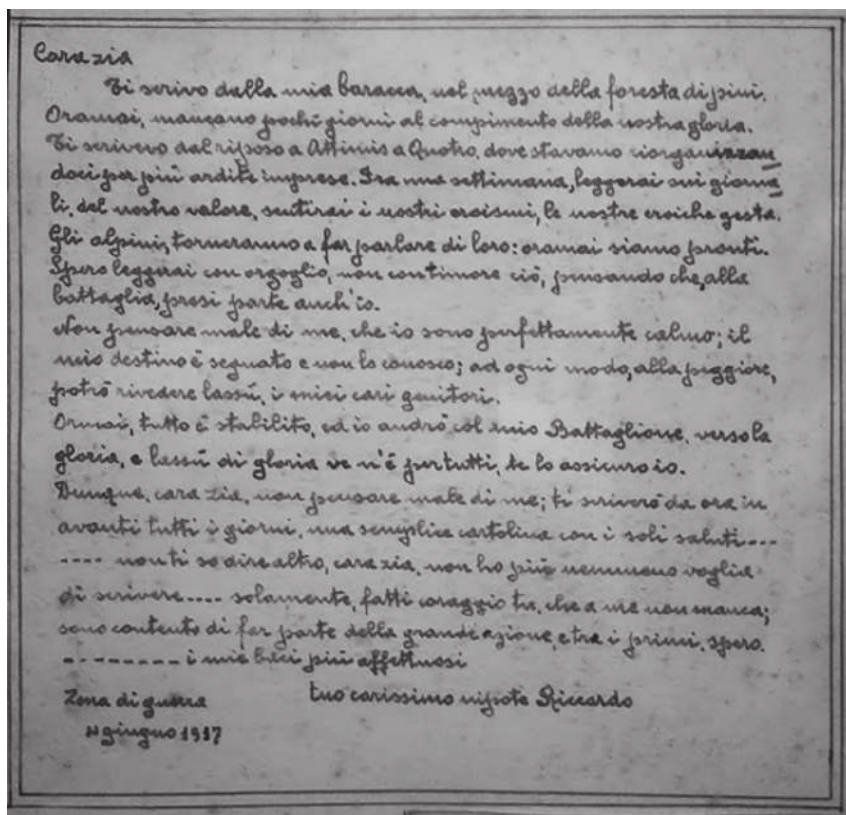 Cara zia
Ti scrivo dalla mia baracca, nel mezzo della foresta di pini.
Oramai, mancano pochi giorni al compimento della nostra gloria.
Ti scrivero dal riposo a Attimis a Quotro, dove stavamo riorganizzan_
doci per più ardite imprese. Fra una settimana, leggerai sui giorna_
li, del nostro valore, sentirai i nostri eroismi, le nostre eroiche gesta.
Gli alpini, torneranno a far parlare di loro: oramai siamo pronti.
Spero leggerai con orgoglio, non con timore ciò, pensando che, alla
battaglia, presi parte anch'io.
Non pensare male di me, che io sono perfettamente calmo; il
mio destino è segnato e non lo conosco; ad ogni modo, alla peggiore,
potrò rivedere lassù, i miei cari genitori.
Ormai, tutto è stabilito, ed io andrò col mio Battaglione, verso la
gloria, e lassù di gloria ve n'è per tutti, te lo assicuro io.
Dunque, cara zia, non pensare male di me; ti scriverò da ora in
avanti tutti i giorni, una semplice cartolina con i soli saluti----
---- non ti so dire altro, cara zia, non ho più nemmeno voglia
di scrivere.... solamente, fatti coraggio tu, che a me non manca;
sono contento di far parte della grande azione, e tra i primi, spero.
--------- i mie baci più affettuosi
tuo carissimo nipote Riccardo
Zona di guerra
giugno 1917